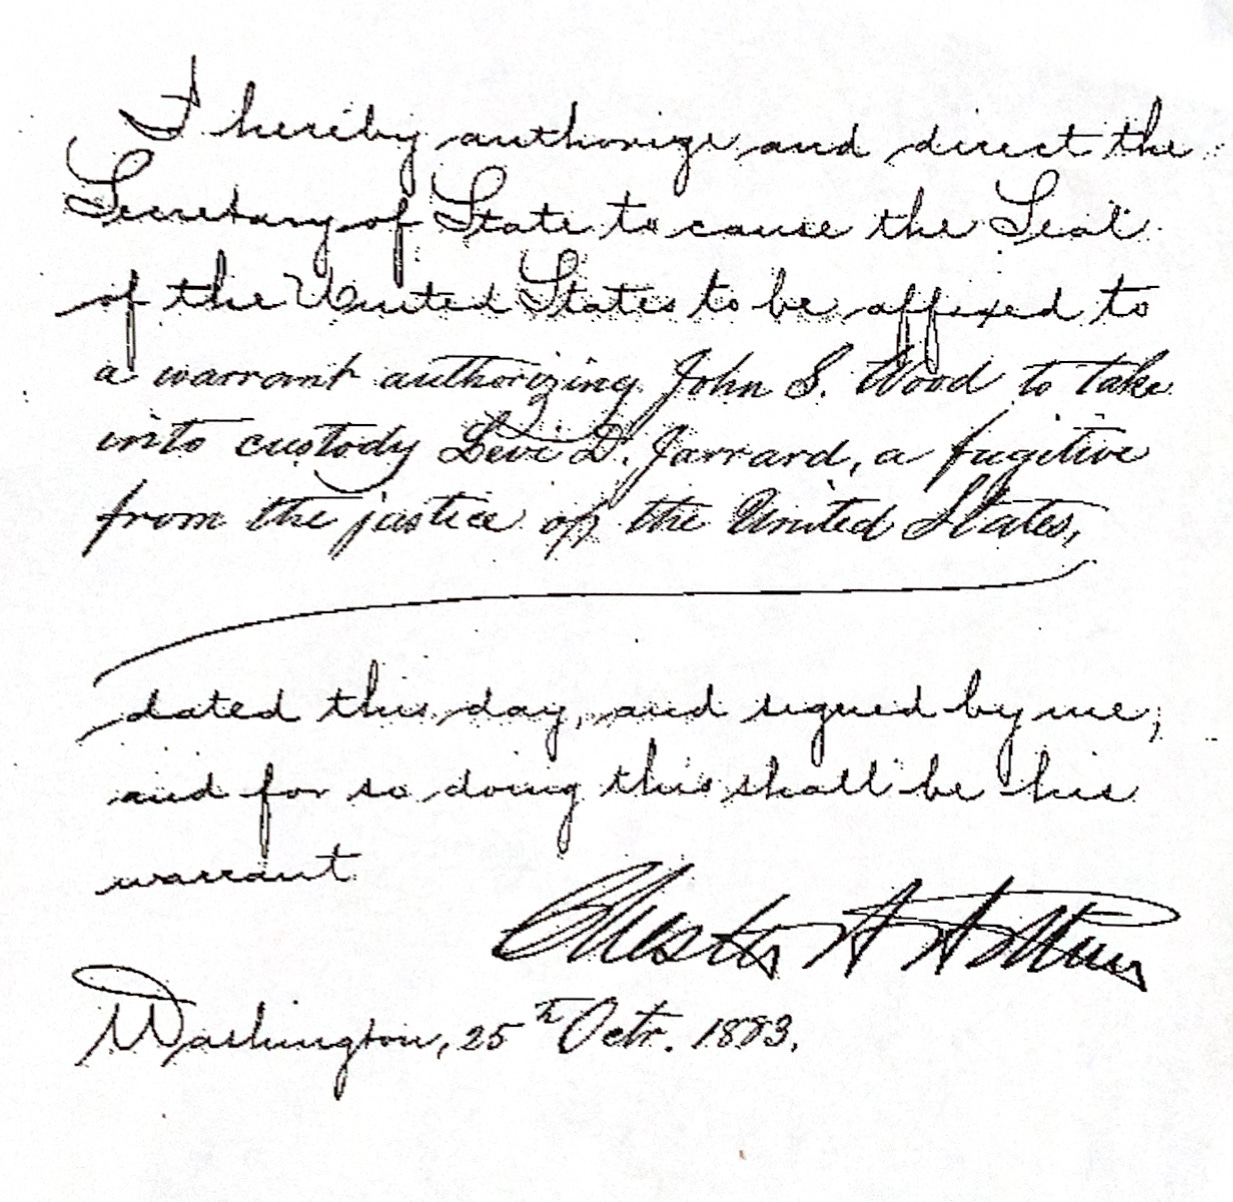 I hereby authorize and direct the
Secretary of State to cause the Seal
of the United States to be affixed to
a warrant authorizing John S. Wood to take
into custody Levi D. Jarrard, a fugitive
from the justice of the United States,
dated this day, and signed by me,
and for so doing this shall be his
warrant
Chester A Arthur
Washington, 25th Octr. 1883.